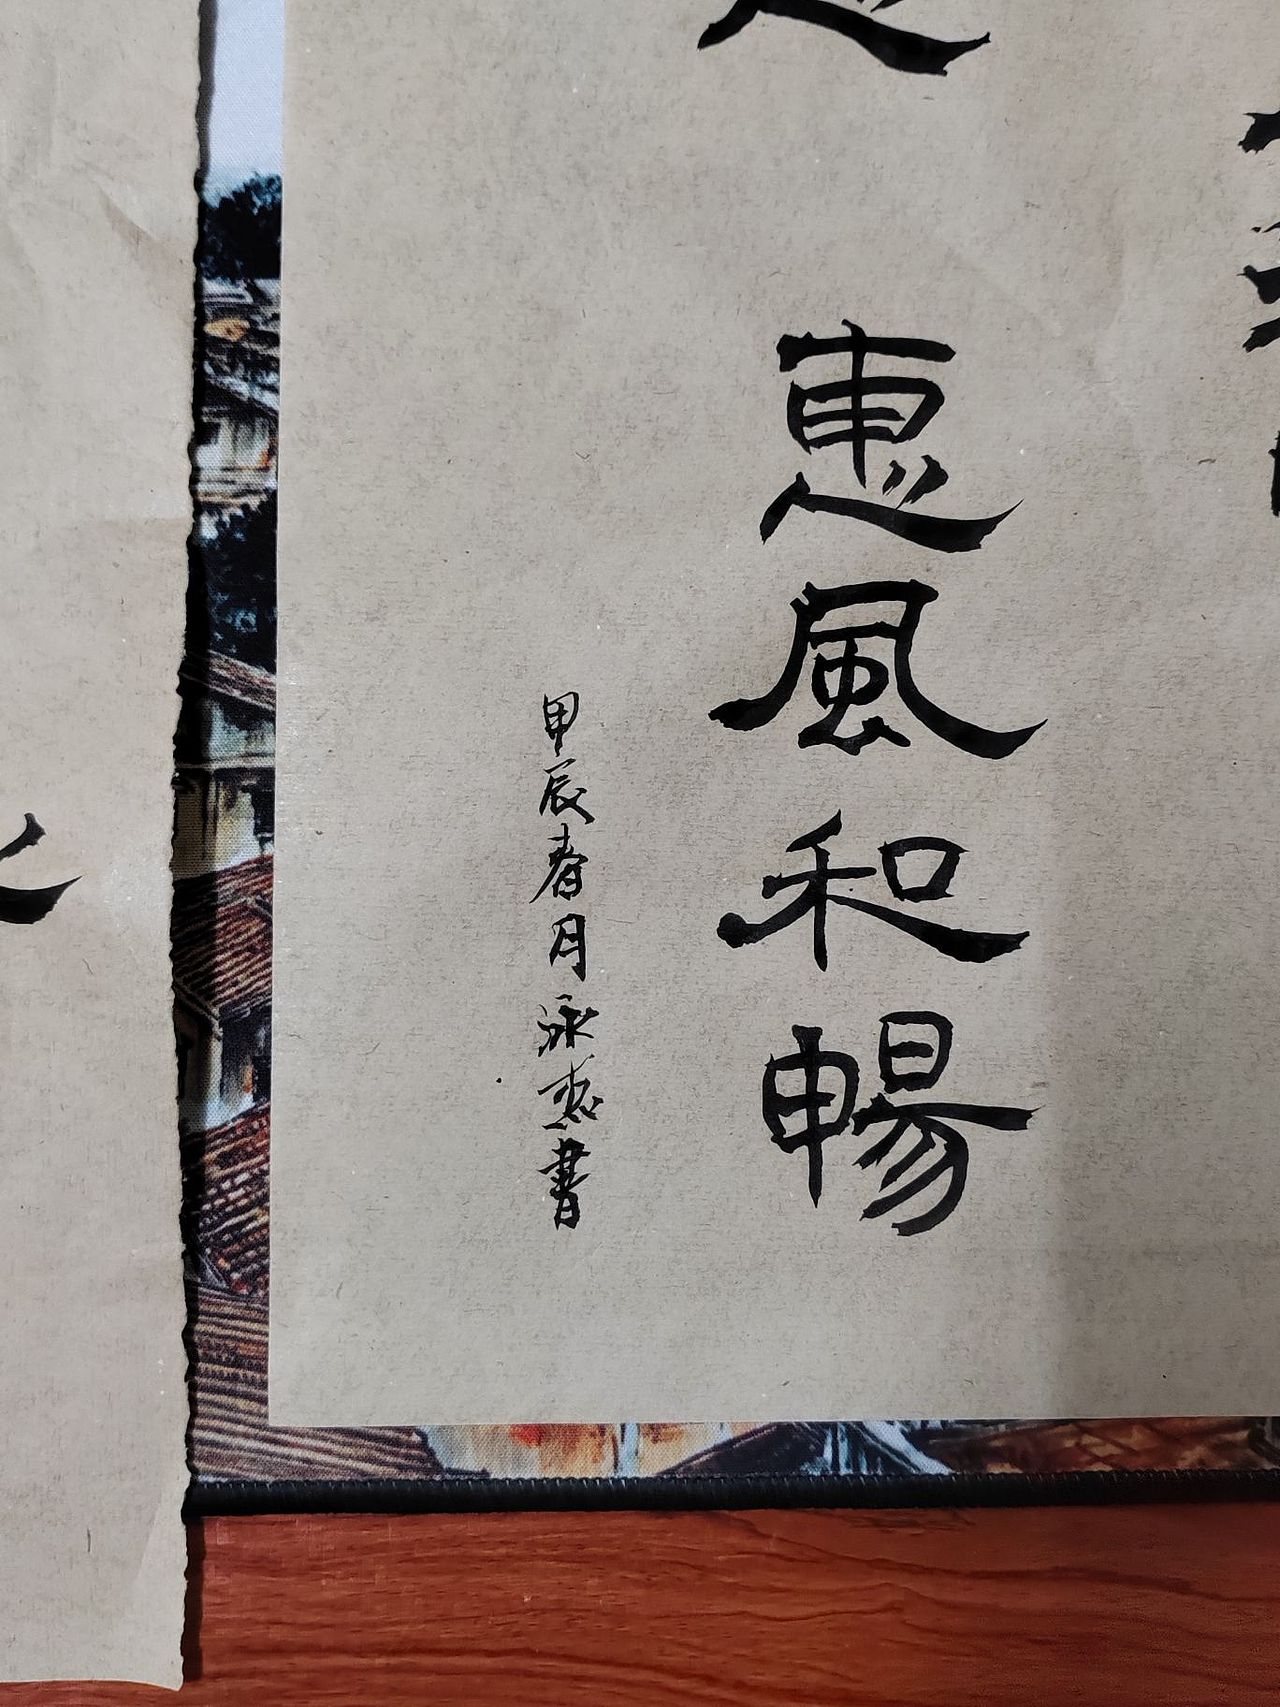 惠風和暢
甲辰春月泳惠書